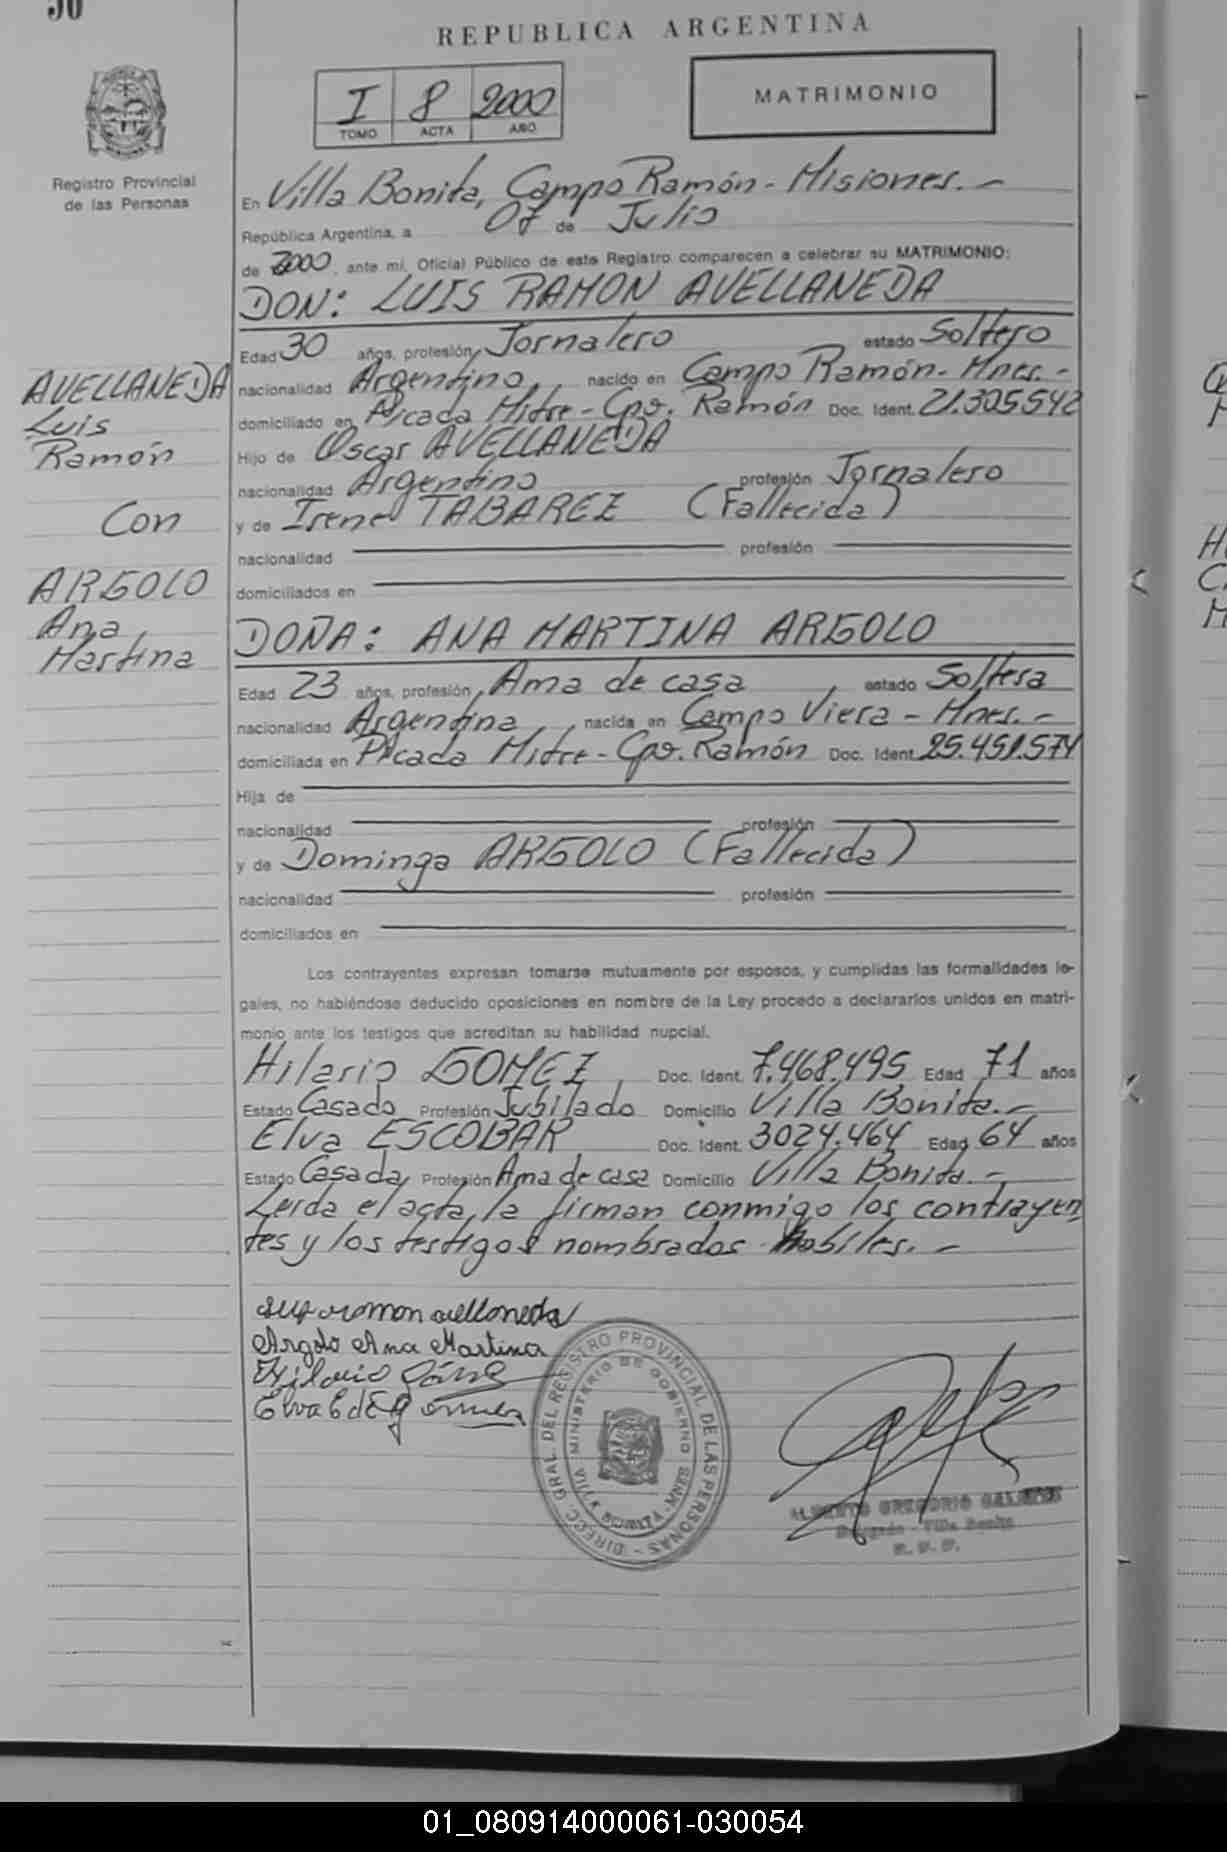 50
REPUBLICA ARGENTINA
I 8 2000
TOMO ACTA AÑO
MATRIMONIO
Registro Provincial
de las Personas
En Villa Bonita, Campo Ramón - Misiones.-
República Argentina, a 07 de Julio
de 2000, ante mi, Oficial Público de este Registro comparecen a celebrar su MATRIMONIO:
DON: LUIS RAMON AVELLANEDA
Edad 30 años, profesión Jornalero estado Soltero
nacionalidad Argentino, nacido en Campo Ramón - Mnes.-
domiciliado en Picada Mitre - Cpo. Ramón Doc. Ident. 21.305.542
Hijo de Oscar AVELLANEDA
nacionalidad Argentino profesión Jornalero
y de Irene TABAREZ (Fallecida)
nacionalidad profesión
domiciliados en
AVELLANEDA
Luis
Ramón
Con
ARGOLO
Ana
Martina
DOÑA: ANA MARTINA ARGOLO
Edad 23 años, profesión Ama de casa, estado Soltera
nacionalidad Argentina, nacida en Campo Viera - Mnes.-
domiciliada en Picada Mitre - Cpo. Ramón Doc. Ident. 25.451.574
Hija de
nacionalidad profesión
y de Dominga ARGOLO (Fallecida)
nacionalidad profesión
domiciliados en
Los contrayentes expresan tomarse mutuamente por esposos, y cumplidas las formalidades le-
gales, no habiéndose deducido oposiciones en nombre de la Ley procedo a declararlos unidos en matri-
monio ante los testigos que acreditan su habilidad nupcial.
Hilario GOMEZ, Doc. Ident. 7.468.495 Edad 71 años
Estado Casado Profesión Jubilado Domicilio Villa Bonita.-
Elva ESCOBAR Doc. Ident. 3024.464 Edad 64 años
Estado Casada, Profesión Ama de casa Domicilio Villa Bonita.-
Leida el acta, la firman conmigo los contrayen
tes y los testigos nombrados habiles.-
ramon avellaneda
Argolo Ana Martina
Hilario
Elva E de
DIRECC. GRAL. DEL REGISTRO PROVINCIAL DE LAS PERSONAS -
MINISTERIO DE GOBIERNO
VILLA BONITA
ALBERTO GREGORIO
Delegado - Villa Bonita
R. P. P.
01_080914000061-030054